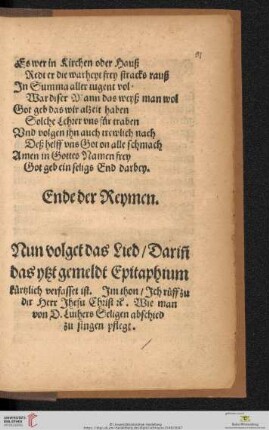 Es wer in Kirchen oder Hauß
Redt er die warheyt frey stracks rauß
In Summa aller tugent vol
War diser Mann das weyß man wol
Got geb das wir alzeit haben
Solche Lehrer vns für traben
Vnd volgen jhn auch trewlich nach
Deß helff vns Got on alle schmach
Amen in Gottes Namen frey
Got geb ein seligs End darbey.
Ende der Reymen.
Nun volget das Lied / Dariñ
das ytzt gemeldt Epitaphium
kürtzlich verfasset ist. Im thon / Ich rüff zu
dir Herr Jhesu Christ ꝛc. Wie man
von D. Luthers Seligen abschied
zu singen pflegt.